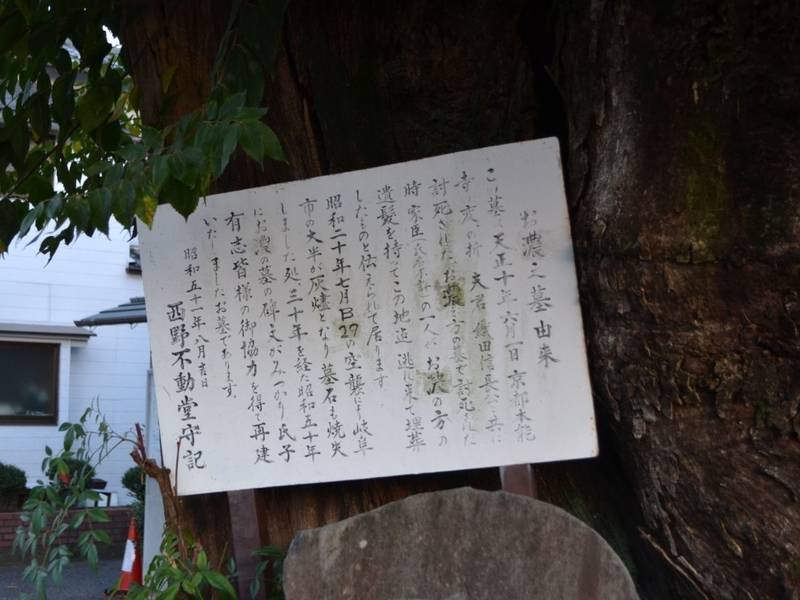 お濃之墓由来
この墓は天正十年六月一日京都本能
寺の変の折、夫君、織田信長公と共に
討死されたお濃の方の墓で討死した
時家臣の一人がお濃の方の
遺髪を持ってこの地迄逃れ来て埋葬
したものと伝えられて居ります
昭和二十年七月B27の空襲により岐阜
市の大半が灰燼となり墓石も焼失
しました処、三十年を経た昭和五十年
にお濃の墓の碑文がみつかり氏子
有志皆様の御協力を得て再建
いたしましたお墓であります。
昭和五十一年八月吉日
西野不動堂守記